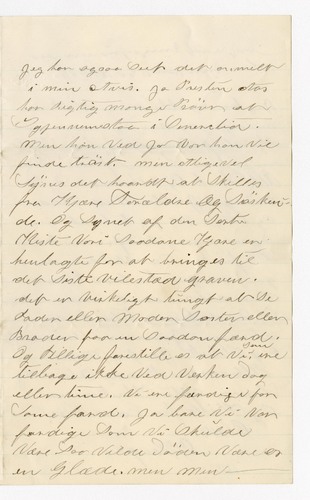 Jeg har ogsaa seet det anmelt
i min Avis. Ja Presten
har Rigtig mange Prøver at
Igjennemstaa i Senere tid.
Men han Ved jo Vor han Vil
finde trøst men alligevel
Synes det haardt at Skilles
fra Kjære Foreldre Og Søsken-
de. Og Synet af den Sorte
Kiste Vori Saadane Kjære er
henlagte for at bringes til
det Siste Vilested graven.
det er virkeligt tungt at Se
Fader eller Moder Søster eller
Broder paa en Saadan færd.
Og tillige forestille os at Vi Som ere
tilbage ikke Ved Verken dag
eller time. Vi ere færdige for
Same færd. Ja bare Vi Var
færdige Som Vi Skulde
Være Saa Vilde døden Være os
en Glæde. men men —